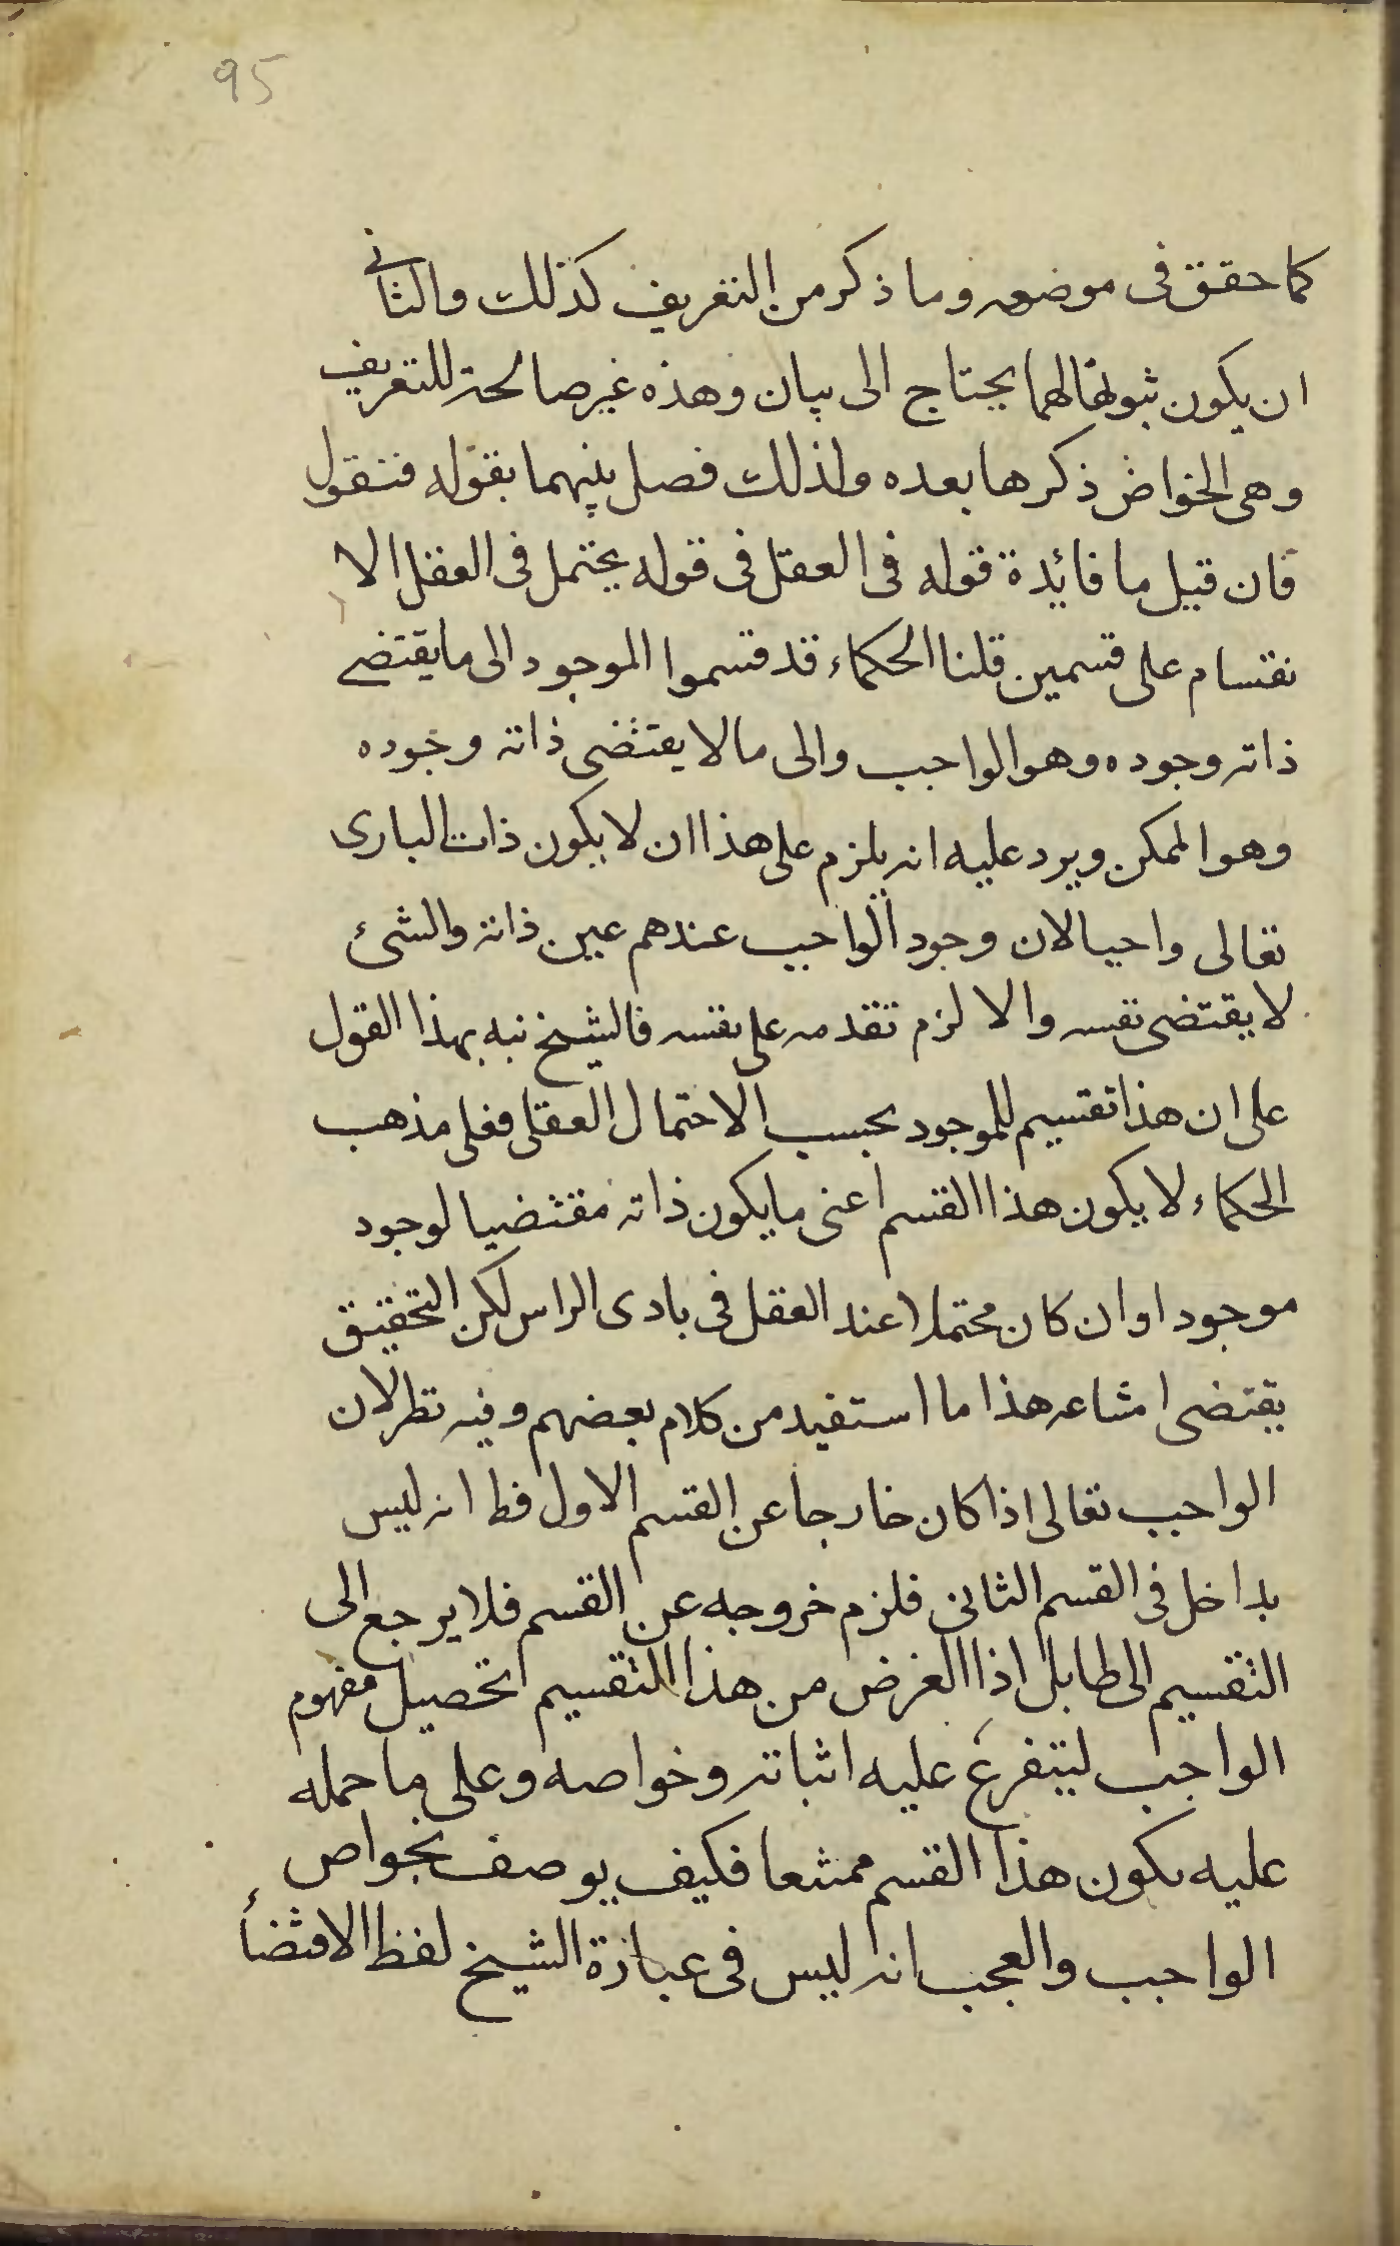 95
كما حقق فى موضعه وما ذكر من التعريف كذلك والثانى
ان يكون ثبوتها لهما يحتاج الى بيان وهذه غير صالحة للتعريف
وهى الخواض ذكرها بعده ولذلك فصل بينهما بقوله فنقول
فان قيل ما فائدة قوله فى العقل فى قوله يحتمل فى العقل الا
نقسام على قسمين قلنا الحكماء قد قسموا الموجود الى ما يقتضى
ذاته وجوده وهو الواجب والى ما لا يقتضى ذاته وجوده
وهو الممكن ويرد عليه انه يلزم على هذا ان لا يكون ذات البارى
تعالى واجبا لان وجود الواجب عندهم عين ذاته والشئ
لا يقتضى نفسه والا لزم تقدمه على نفسه فالشيخ نبه بهذا القول
على ان هذا تقسيم للموجود بحسب الاحتمال العقلى فعلى مذهب
الحكماء لا يكون هذا القسم اعنى ما يكون ذاته مقتضيا لوجود
موجودا وان كان محتملا عند العقل فى بادى الراس لكن التحقيق
يقتضى امتناعه هذا ما استفيد من كلام بعضهم وفيه نظر لان
الواجب تعالى اذا كان خارجا عن القسم الاول فظ انه ليس
بداخل فى القسم الثانى فلزم خروجه عن القسم فلا يرجع الى
التقسيم الى طايل اذا الغرض من هذا التقسيم تحصيل مفهوم
الواجب ليتفرع عليه اثباته وخواصه وعلى ما حمله
عليه يكون هذا القسم ممتنعا فكيف يوصف بخواص
الواجب والعجب انه ليس فى عبارة الشيخ لفظ الاقتضأ